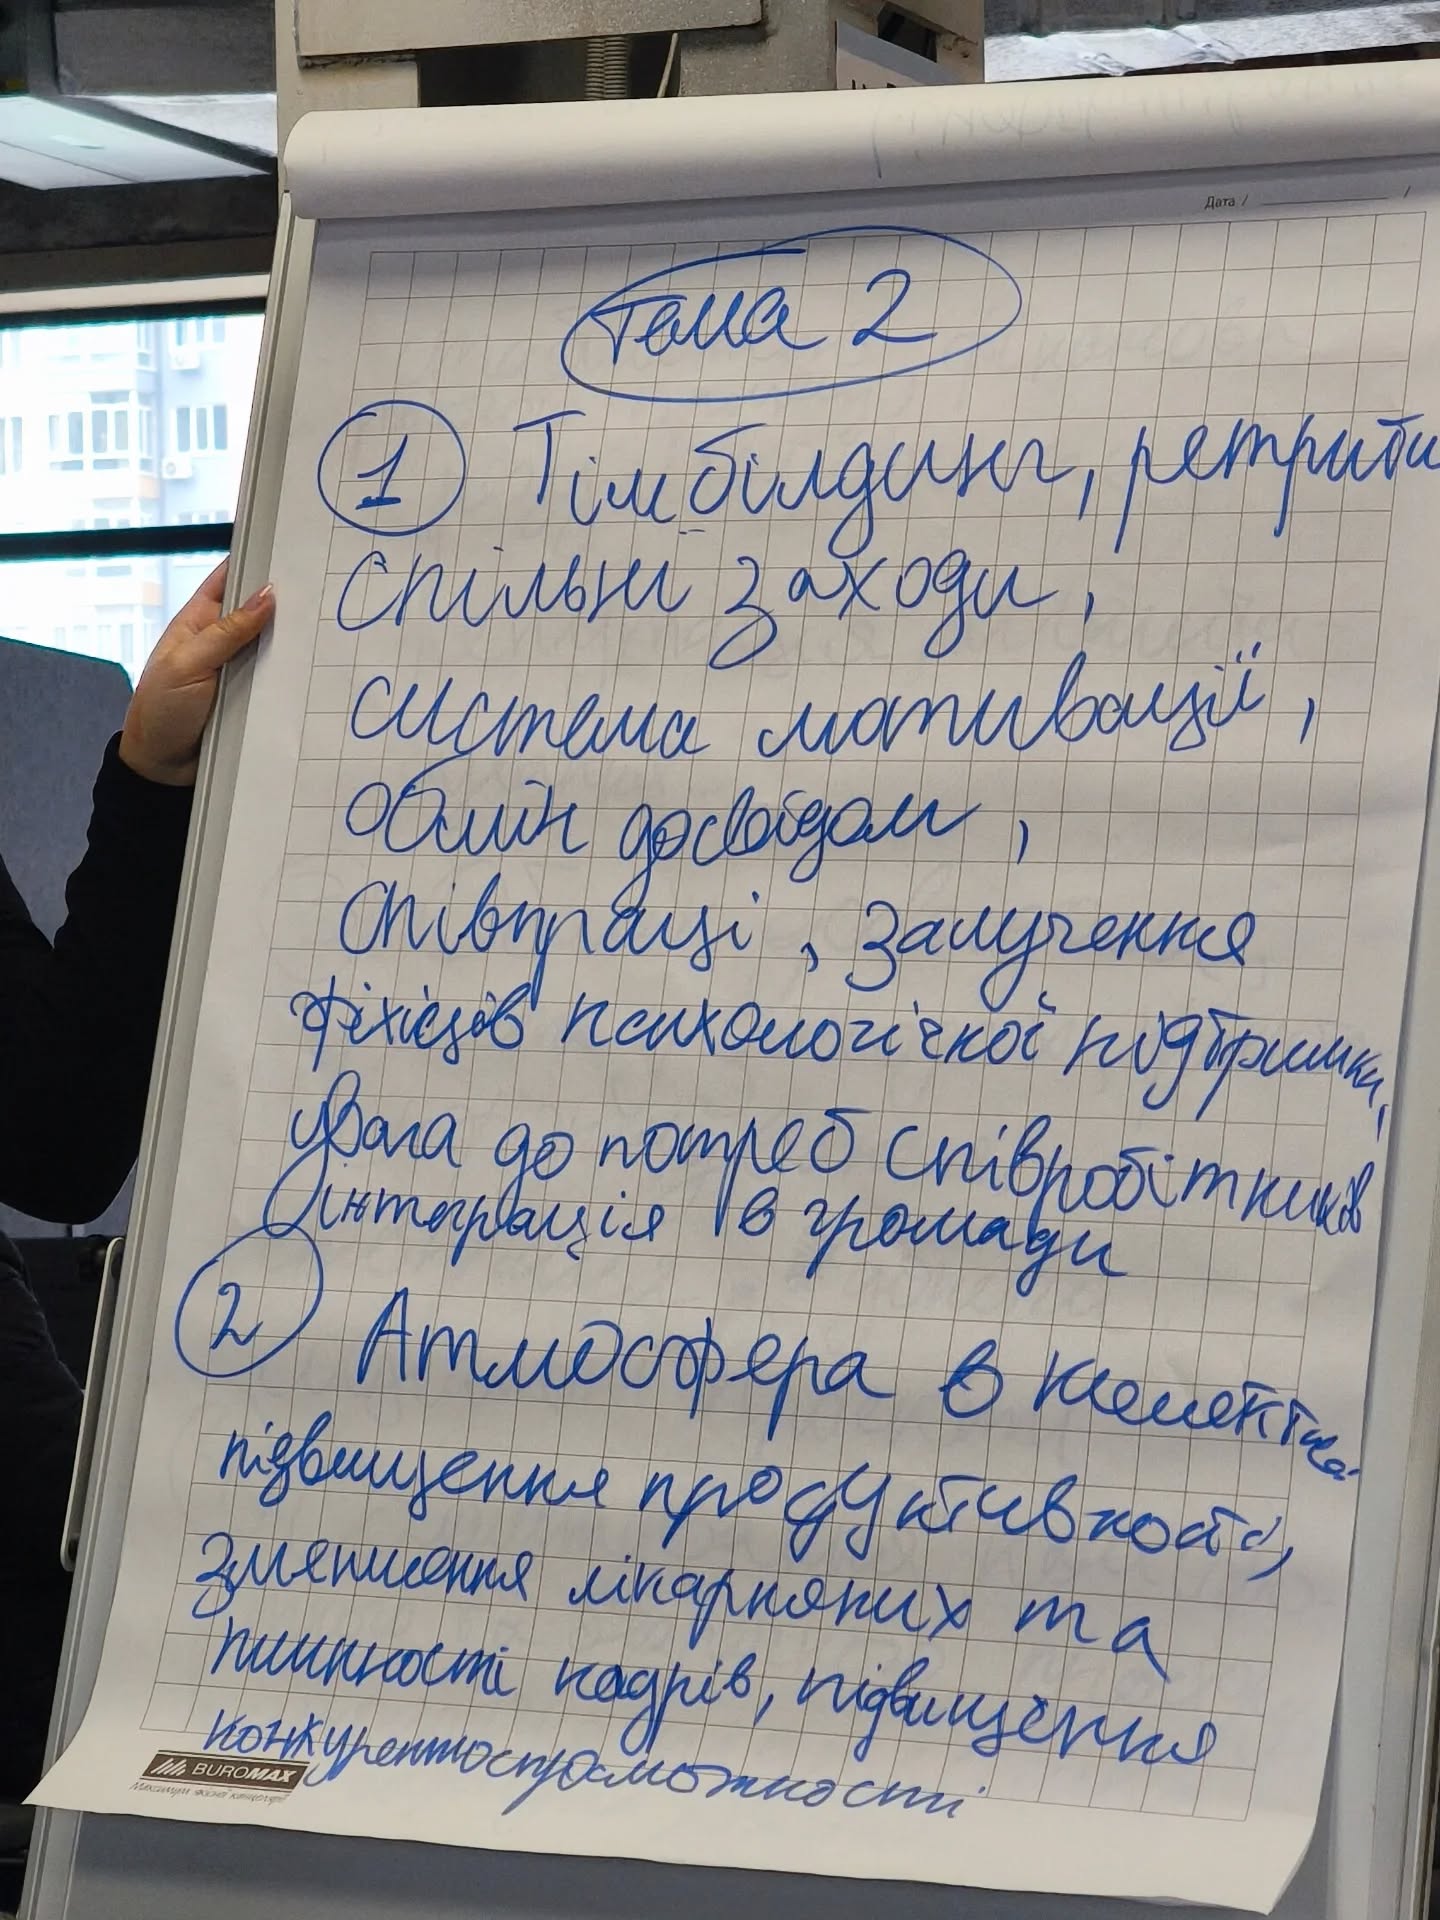 Дата /
Тема 2
1 Тімбілдинг, ретрити
спільні заходи,
система мотивації,
обмін досвідом,
співпраці, залучення
фіхівців психологічної підтримки,
увага до потреб співробітників
інтеграція в громади
2 Атмосфера в
підвищення продуктивності,
зменшення лікарняних та
плинності кадрів, підвищення
конкурентоспроможності
BUROMAX
Максимум якісної канцелярії